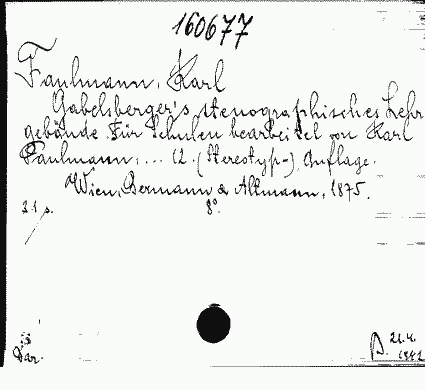 160677
Faulmann, Karl
Gabelsberger's stenographisches Lehr
gebäude. Für Schulen bearbeitet von Karl
Faulmann, ... 12. (Stereotyp-) Auflage.
Wien, Bermann & Altmann, 1875.
31 s. 8°
Dar.
21.4.